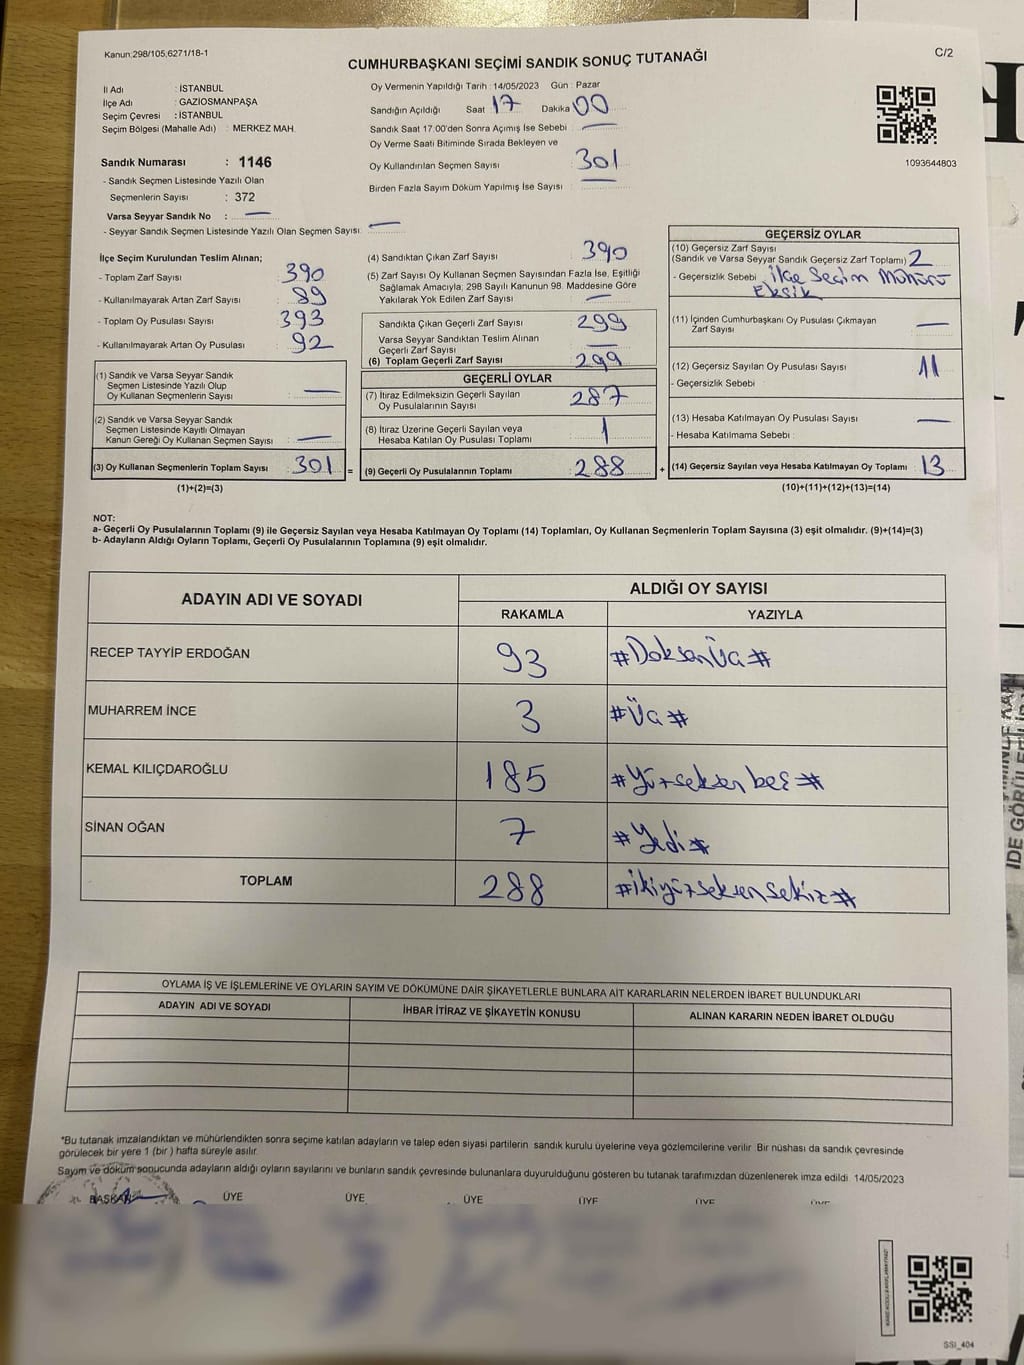 Kanun:298/105,6271/18-1
CUMHURBAŞKANI SEÇİMİ SANDIK SONUÇ TUTANAĞI
C/2
İl Adı : İSTANBUL
İlçe Adı : GAZİOSMANPAŞA
Seçim Çevresi : İSTANBUL
Seçim Bölgesi (Mahalle Adı) : MERKEZ MAH.
Sandık Numarası : 1146
- Sandık Seçmen Listesinde Yazılı Olan
Seçmenlerin Sayısı : 372
Varsa Seyyar Sandık No : —
- Seyyar Sandık Seçmen Listesinde Yazılı Olan Seçmen Sayısı: —
Oy Vermenin Yapıldığı Tarih : 14/05/2023 Gün : Pazar
Sandığın Açıldığı Saat 17 Dakika 00
Sandık Saat 17.00'den Sonra Açımış İse Sebebi : —
Oy Verme Saati Bitiminde Sırada Bekleyen ve
Oy Kullandırılan Seçmen Sayısı : 301
Birden Fazla Sayım Döküm Yapılmış İse Sayısı : —
1093644803
İlçe Seçim Kurulundan Teslim Alınan;
- Toplam Zarf Sayısı : 390
- Kullanılmayarak Artan Zarf Sayısı : 89
- Toplam Oy Pusulası Sayısı : 393
- Kullanılmayarak Artan Oy Pusulası : 92
(1) Sandık ve Varsa Seyyar Sandık
Seçmen Listesinde Yazılı Olup
Oy Kullanan Seçmenlerin Sayısı : —
(2) Sandık ve Varsa Seyyar Sandık
Seçmen Listesinde Kayıtlı Olmayan
Kanun Gereği Oy Kullanan Seçmen Sayısı : —
(3) Oy Kullanan Seçmenlerin Toplam Sayısı : 301 =
(1)+(2)=(3)
(4) Sandıktan Çıkan Zarf Sayısı : 390
(5) Zarf Sayısı Oy Kullanan Seçmen Sayısından Fazla İse, Eşitliği
Sağlamak Amacıyla; 298 Sayılı Kanunun 98. Maddesine Göre
Yakılarak Yok Edilen Zarf Sayısı : —
Sandıkta Çıkan Geçerli Zarf Sayısı : 299
Varsa Seyyar Sandıktan Teslim Alınan
Geçerli Zarf Sayısı : —
(6) Toplam Geçerli Zarf Sayısı : 299
GEÇERLİ OYLAR
(7) İtiraz Edilmeksizin Geçerli Sayılan
Oy Pusulalarının Sayısı : 287
(8) İtiraz Üzerine Geçerli Sayılan veya
Hesaba Katılan Oy Pusulası Toplamı : 1
(9) Geçerli Oy Pusulalarının Toplamı : 288 +
GEÇERSİZ OYLAR
(10) Geçersiz Zarf Sayısı
(Sandık ve Varsa Seyyar Sandık Geçersiz Zarf Toplamı) : 2
- Geçersizlik Sebebi : İlçe Seçim Mühürü
Eksik
(11) İçinden Cumhurbaşkanı Oy Pusulası Çıkmayan
Zarf Sayısı : —
(12) Geçersiz Sayılan Oy Pusulası Sayısı : 11
- Geçersizlik Sebebi :
(13) Hesaba Katılmayan Oy Pusulası Sayısı : —
- Hesaba Katılmama Sebebi :
(14) Geçersiz Sayılan veya Hesaba Katılmayan Oy Toplamı : 13
(10)+(11)+(12)+(13)=(14)
NOT:
a- Geçerli Oy Pusulalarının Toplamı (9) ile Geçersiz Sayılan veya Hesaba Katılmayan Oy Toplamı (14) Toplamları, Oy Kullanan Seçmenlerin Toplam Sayısına (3) eşit olmalıdır. (9)+(14)=(3)
b- Adayların Aldığı Oyların Toplamı, Geçerli Oy Pusulalarının Toplamına (9) eşit olmalıdır.
ADAYIN ADI VE SOYADI
ALDIĞI OY SAYISI
RAKAMLA YAZIYLA
RECEP TAYYİP ERDOĞAN 93 #DoksanÜç#
MUHARREM İNCE 3 #Üç#
KEMAL KILIÇDAROĞLU 185 #Yüzseksenbeş#
SİNAN OĞAN 7 #Yedi#
TOPLAM 288 #ikiyüzseksensekiz#
OYLAMA İŞ VE İŞLEMLERİNE VE OYLARIN SAYIM VE DÖKÜMÜNE DAİR ŞİKAYETLERLE BUNLARA AİT KARARLARIN NELERDEN İBARET BULUNDUKLARI
ADAYIN ADI VE SOYADI İHBAR İTİRAZ VE ŞİKAYETİN KONUSU ALINAN KARARIN NEDEN İBARET OLDUĞU
*Bu tutanak imzalandıktan ve mühürlendikten sonra seçime katılan adayların ve talep eden siyasi partilerin sandık kurulu üyelerine veya gözlemcilerine verilir. Bir nüshası da sandık çevresinde
görülecek bir yere 1 (bir ) hafta süreyle asılır.
Sayım ve döküm sonucunda adayların aldığı oyların sayılarını ve bunların sandık çevresinde bulunanlara duyurulduğunu gösteren bu tutanak tarafımızdan düzenlenerek imza edildi. 14/05/2023
BAŞKAN ÜYE ÜYE ÜYE ÜYE ÜYE ÜYE
SSI_404
İDE GÖRÜLE